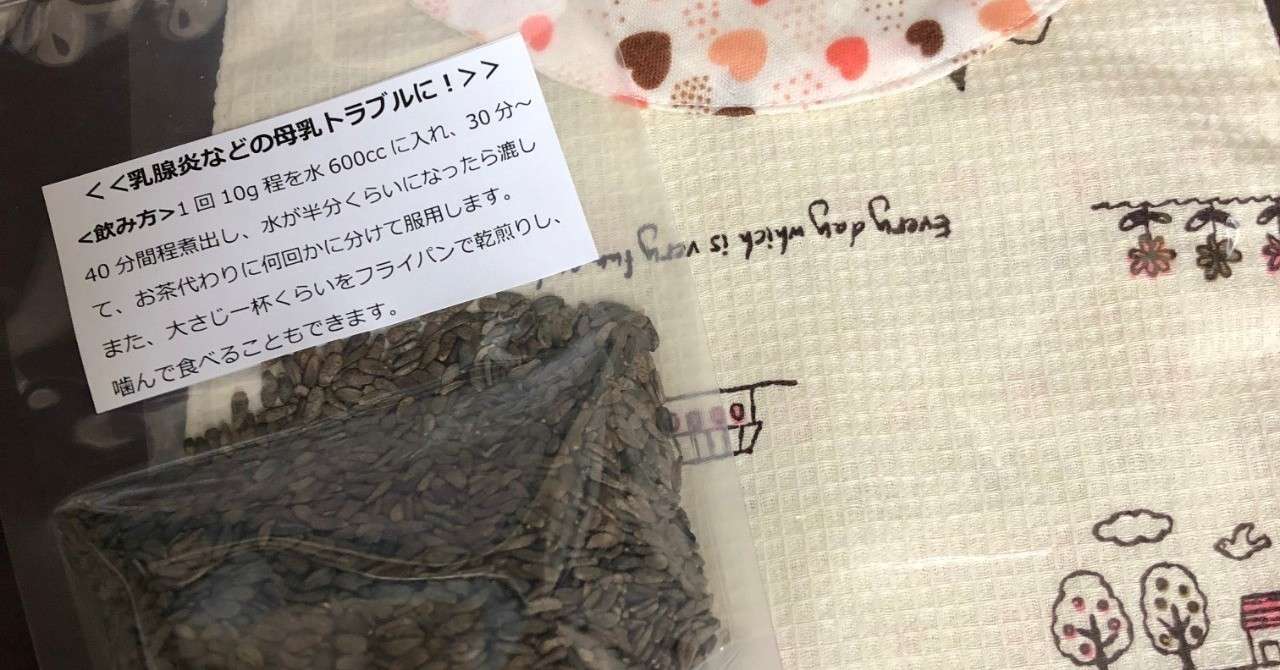 <<乳腺炎などの母乳トラブルに！>>
<飲み方>1回10g程を水600ccに入れ、30分～
40分間程煮出し、水が半分くらいになったら漉し
て、お茶代わりに何回かに分けて服用します。
また、大さじ一杯くらいをフライパンで乾煎りし、
噛んで食べることもできます。
Every day which is very fun